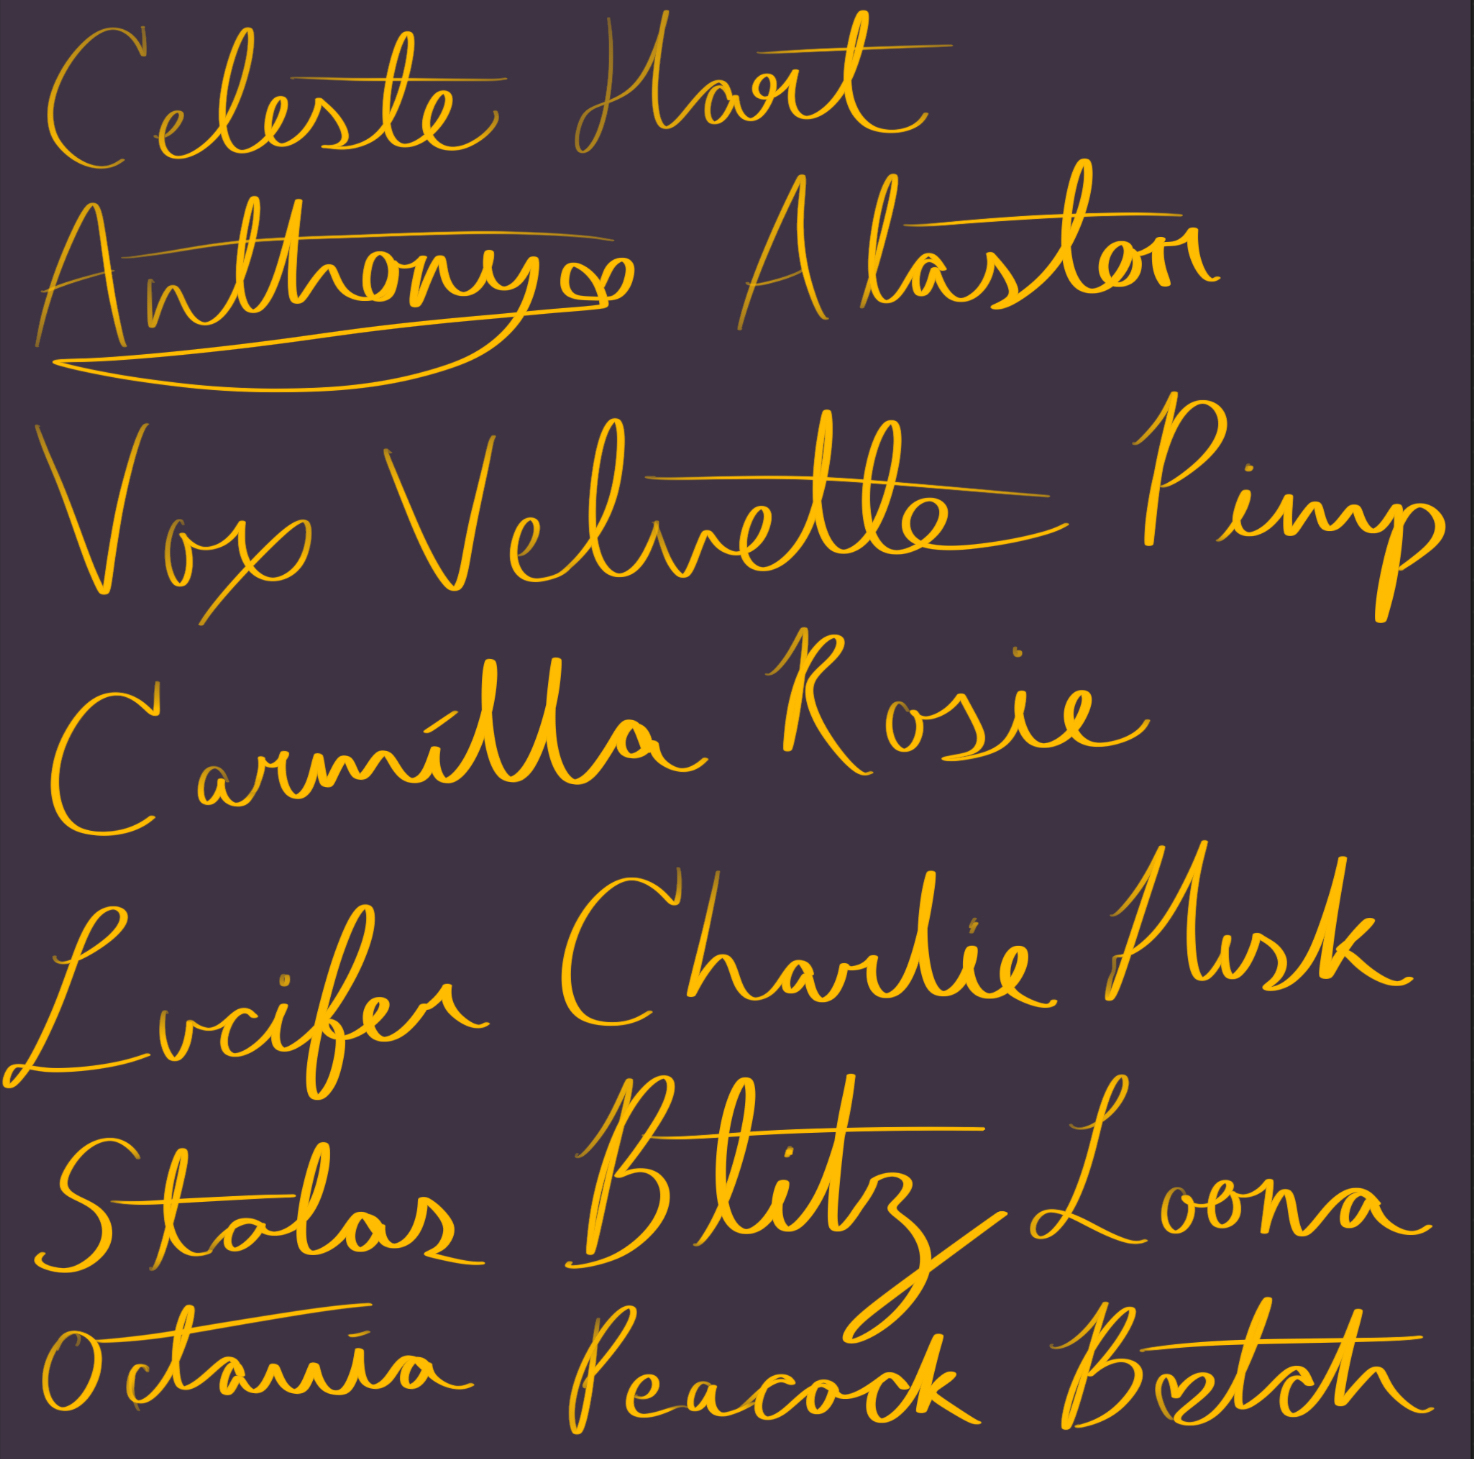 Celeste Hart
Anthony♡ Alastor
Vox Velvette Pimp
Carmílla Rosie
Lucifer Charlie Husk
Stolas Blitz Loona
Octavia Peacock B♡tch